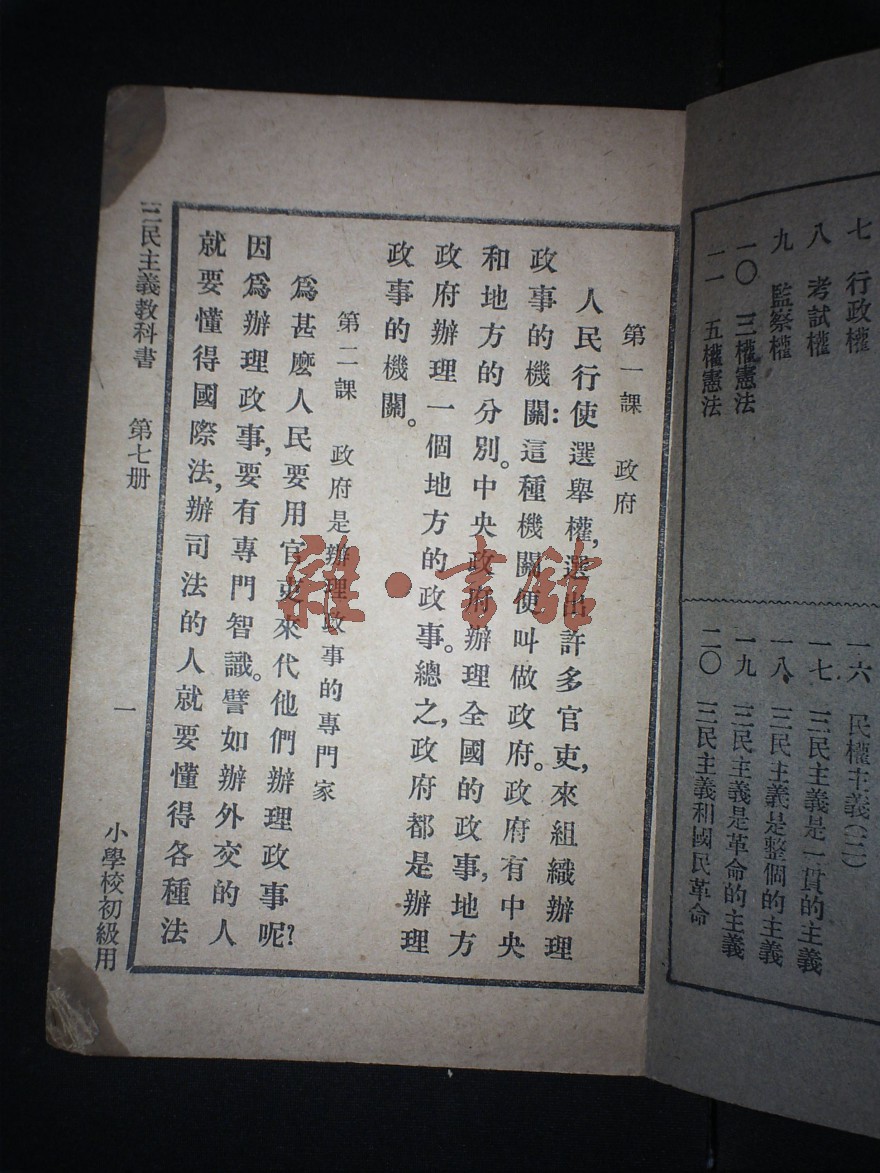 七 行政權
八 考試權
九 監察權
一〇 三權憲法
一一 五權憲法
一六 民權主義(二)
一七 三民主義是一貫的主義
一八 三民主義是整個的主義
一九 三民主義是革命的主義
二〇 三民主義和國民革命
第一課 政府
人民行使選舉權,選出許多官吏,來組織辦理
政事的機關:這種機關便叫做政府。政府有中央
和地方的分別。中央政府辦理全國的政事,地方
政府辦理一個地方的政事。總之,政府都是辦理
政事的機關。
第二課 政府是辦理政事的專門家
爲甚麽人民要用官吏來代他們辦理政事呢?
因爲辦理政事,要有專門智識。譬如辦外交的人
就要懂得國際法,辦司法的人就要懂得各種法
三民主義教科書 第七册 一 小學校初級用
雜·書館